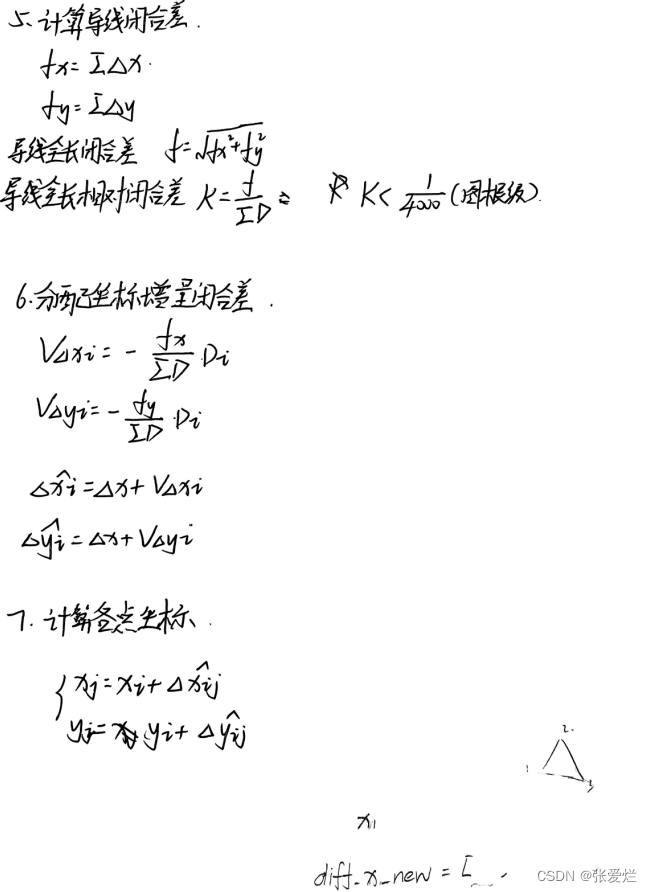 5、计算导线闭合差.
fx=ΣΔx.
fy=ΣΔy
导线全长闭合差 f=√(fx²+fy²)
导线全长相对闭合差 K=f/ΣD K<1/4000(图根级).
6.分配坐标增量闭合差.
VΔxi=-fx/ΣD.Di
VΔyi=-fy/ΣD.Di
Δx̂i=Δx+VΔxi
Δŷi=Δx+VΔyi
7.计算各点坐标.
{xj=xi+Δx̂ij
yj=yi+Δŷij
2.
1
3
x11
diff_x_new=[
CSDN @张爱烂